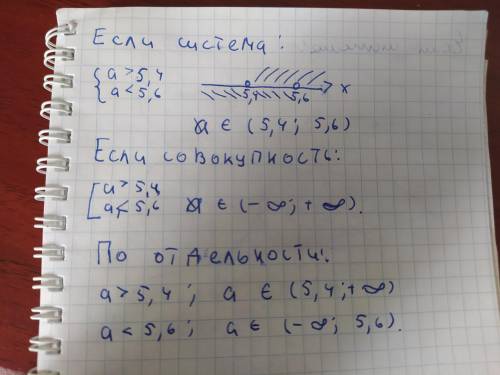 Если система:
{a > 5,4
a < 5,6
5,4 5,6 x
a ∈ (5,4; 5,6)
Если совокупность:
[a > 5,4
a < 5,6 a ∈ (-∞; +∞).
По отдельности:
a > 5,4; a ∈ (5,4; +∞)
a < 5,6; a ∈ (-∞; 5,6).